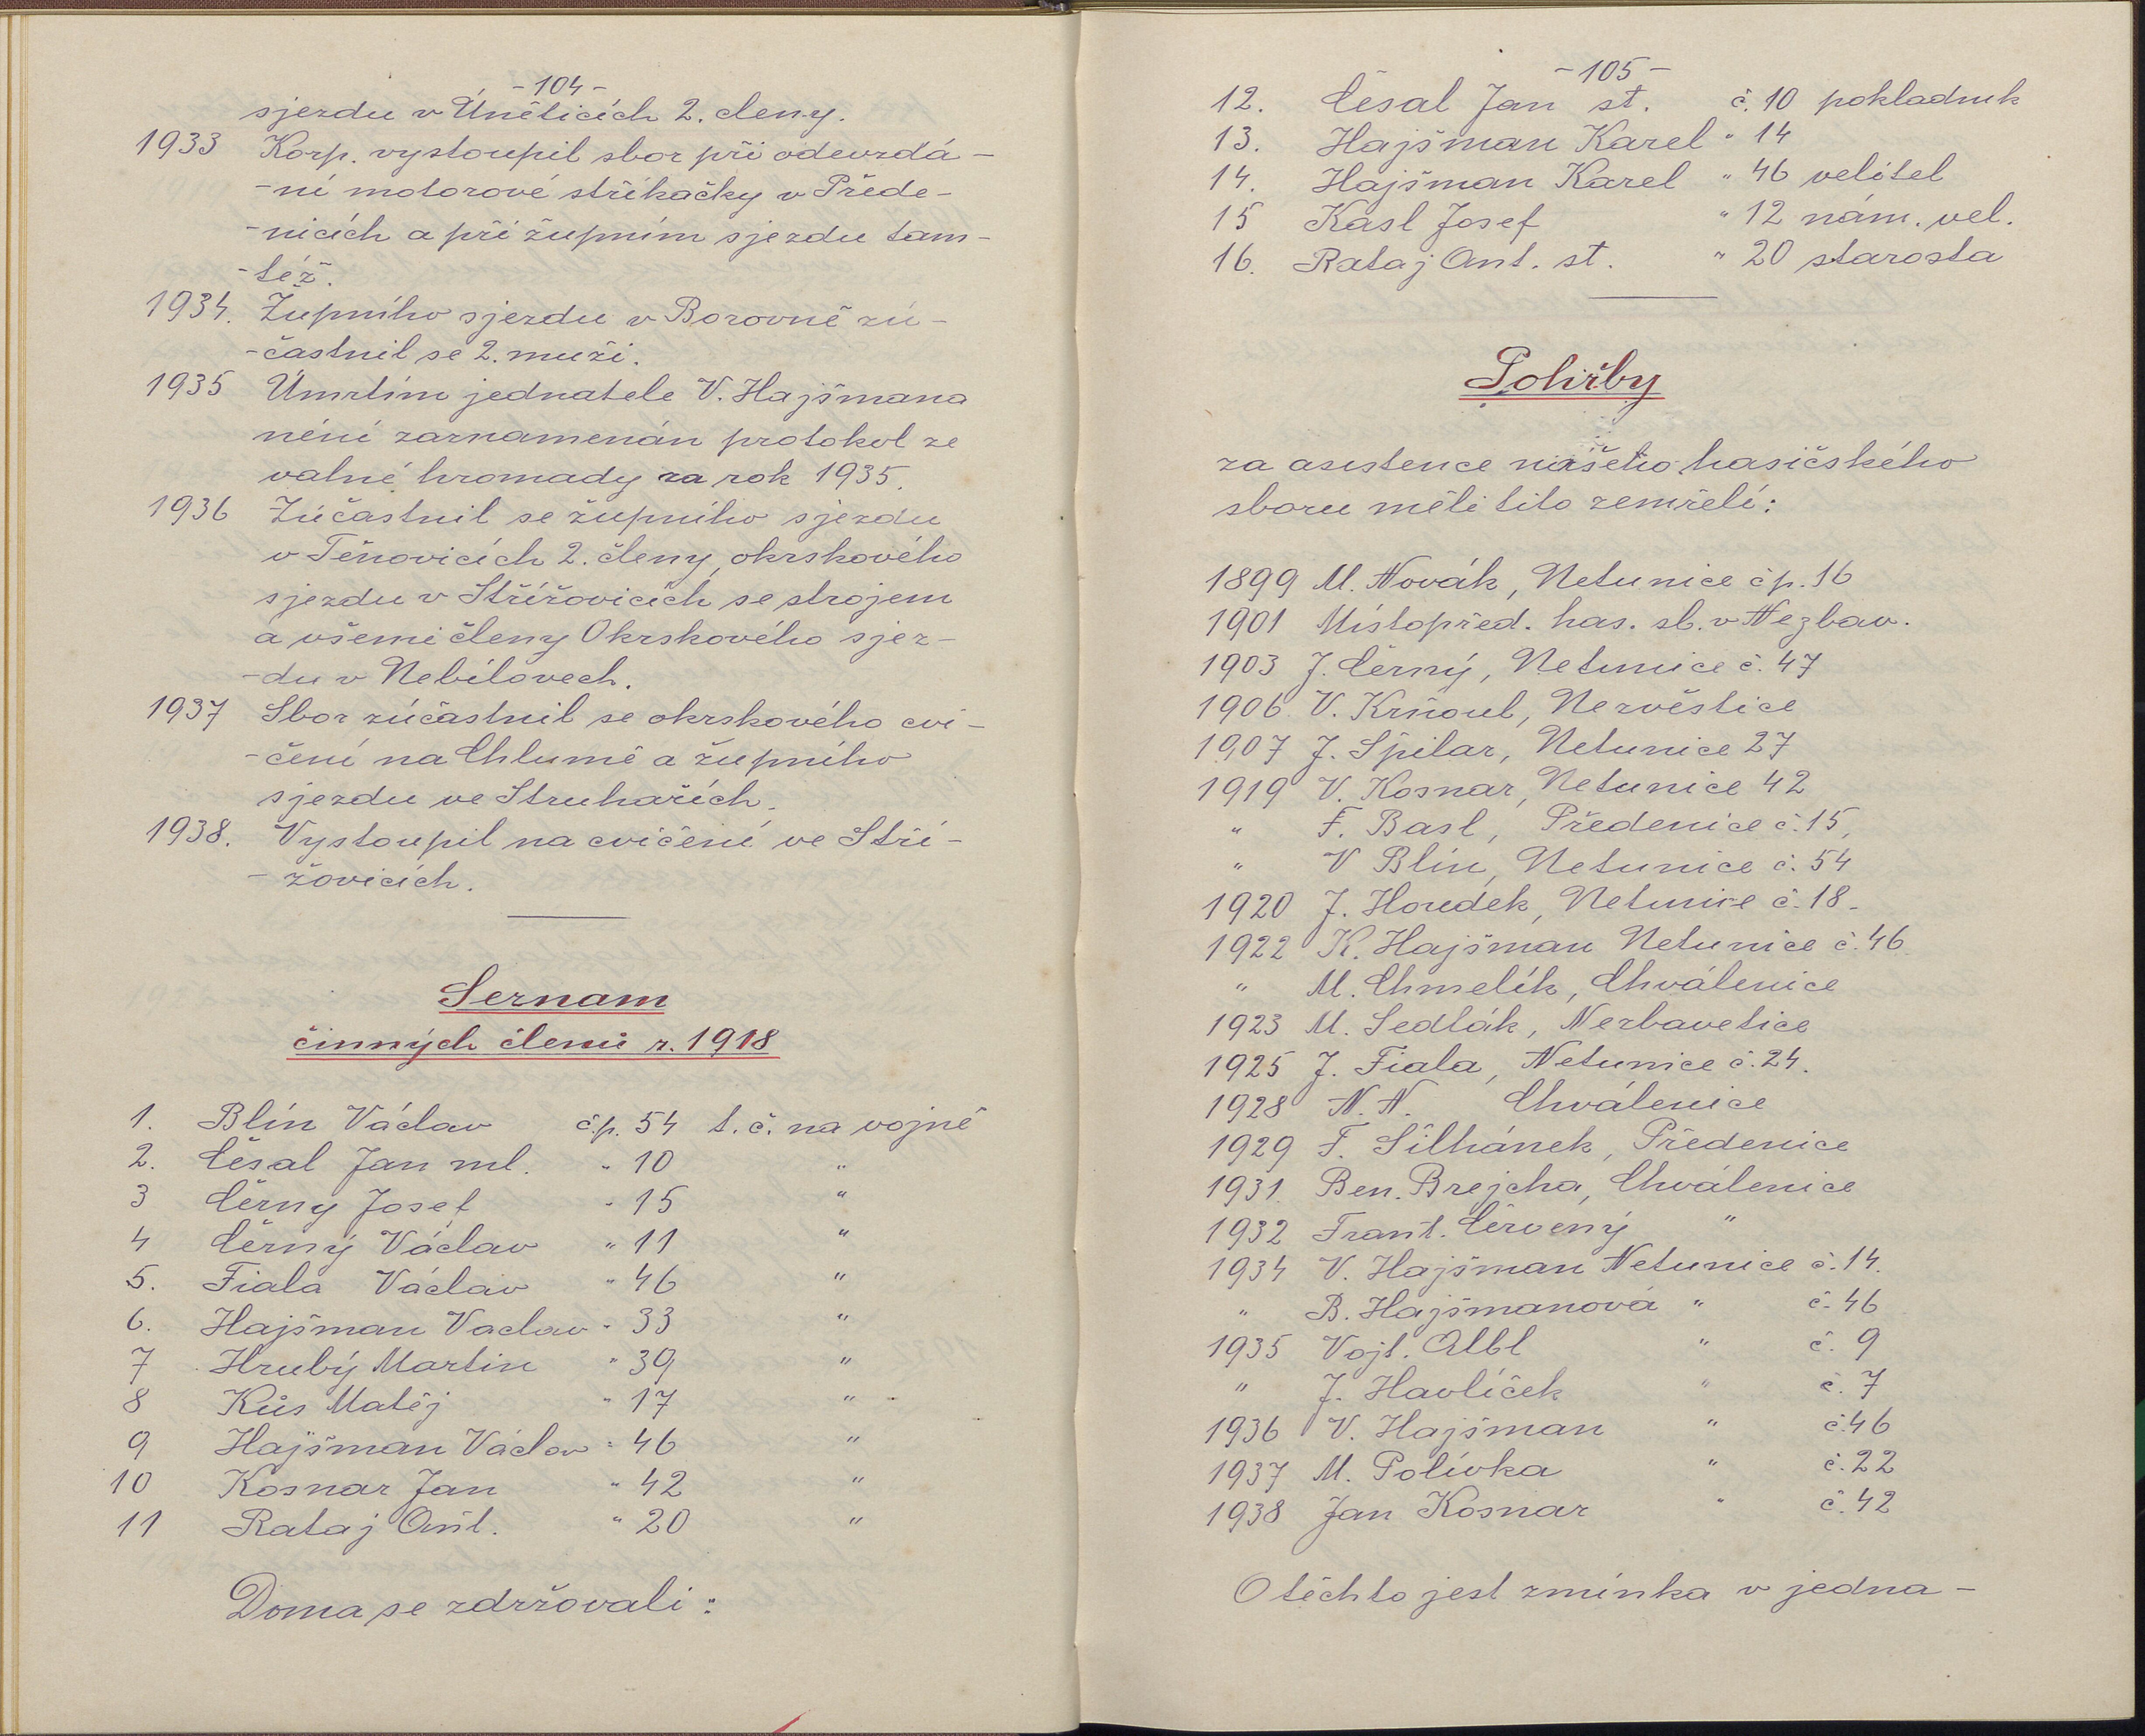 -104-
sjezdu v Úněticích 2. členy.
1933 Korp. vystoupil sbor při odevzdá-
-ní motorové stříkačky v Přede-
-nicích a při župním sjezdu tam-
-též.
1934. Župního sjezdu v Borovně zú-
-častnil se 2. muži.
1935 Úmrtím jednatele V. Hajšmana
není zaznamenán protokol ze
valné hromady za rok 1935.
1936 Zúčastnil se župního sjezdu
v Těnovicích 2. členy, okrskového
sjezdu v Střížovicích se strojem
a všemi členy Okrskového sjez-
-du v Nebílovech.
1937 Sbor zúčastnil se okrskového cvi-
-čení na Chlumě a župního
sjezdu ve Struhařích.
1938. Vystoupil na cvičení ve Stří-
-žovicích.
Seznam
činných členů r. 1918
1. Blín Václav čp. 54 t. č. na vojně
2. Česal Jan ml. " 10 "
3 Černy Josef " 15 "
4 Černý Václav " 11 "
5. Fiala Václav " 46 "
6. Hajšman Vaclav " 33 "
7 Hrubý Martin " 39 "
8 Kůs Matěj " 17 "
9 Hajšman Václav " 46 "
10 Kosnar Jan " 42 "
11 Rataj Ant. " 20 "
Doma se zdržovali:
-105-
12. Česal Jan st. č. 10 pokladník
13. Hajšman Karel " 14
14. Hajšman Karel " 46 velitel
15 Kasl Josef " 12 nám. vel.
16. Rataj Ant. st. " 20 starosta
Pohřby
za asistence našeho hasičského
sboru měli tito zemřelí:
1899 M. Novák, Netunice čp. 16
1901 Místopřed. has. sb. v Nezbav.
1903 J. Černý, Netunice č. 47
1906. V. Krňoul, Nezvěstice
1907 J. Špilar, Netunice 27
1919 V. Kosnar, Netunice 42
" F. Basl, Předenice č. 15,
" V Blín, Netunice č. 54
1920 J. Houdek, Netunice č. 18.
1922 K. Hajšman Netunice č. 46.
" M. Chmelík, Chválenice
1923 M. Sedlák, Nezbavetice
1925 J. Fiala, Netunice č. 24.
1928 N. N. Chválenice
1929 F. Šilhánek, Předenice
1931. Ben. Brejcha, Chválenice
1932 Frant. Červený "
1934 V. Hajšman Netunice č. 14.
" B. Hajšmanová " č. 46
1935 Vojt. Albl " č. 9
" J. Havlíček " č. 7
1936 V. Hajšman " č. 46
1937 M. Polívka " č. 22
1938 Jan Kosnar " č. 42
O těchto jest zmínka v jedna-